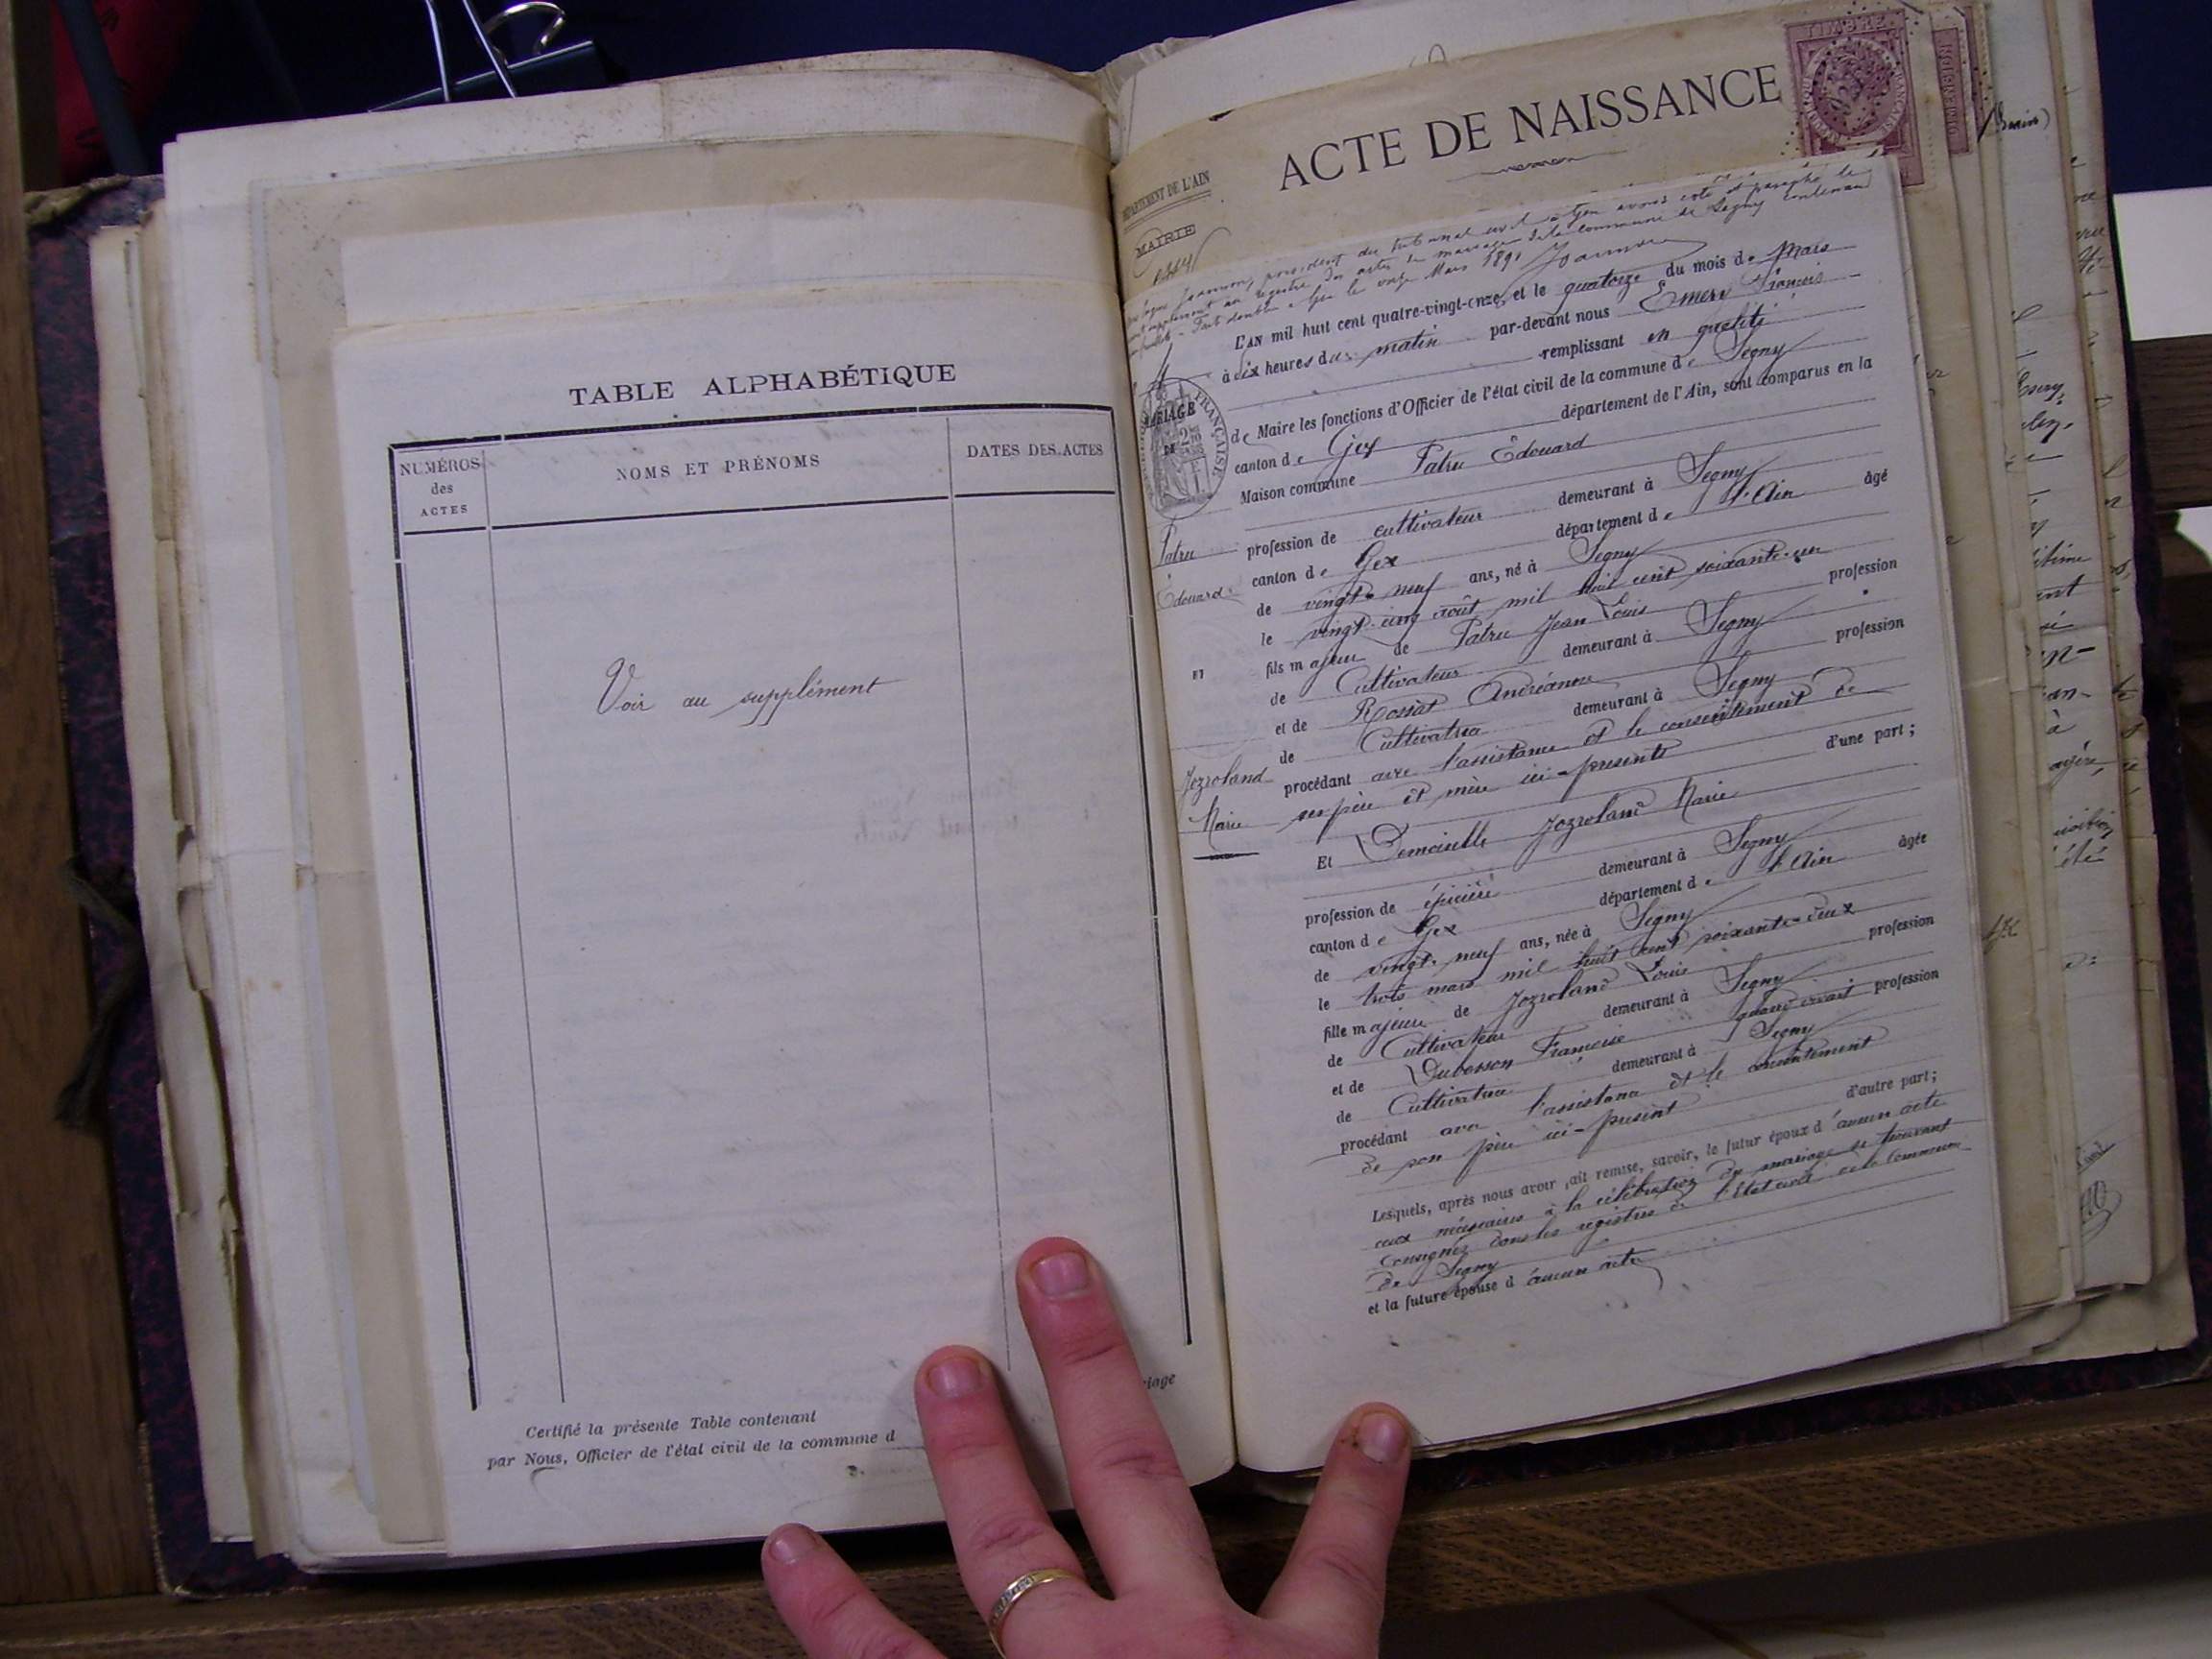 TABLE ALPHABÉTIQUE
NUMÉROS
des
ACTES
NOMS ET PRÉNOMS
DATES DES ACTES
Voir au supplément
Certifié la présente Table contenant
par Nous, Officier de l'état civil de la commune d
ACTE DE NAISSANCE
TIMBRE
DÉPARTEMENT DE L'AIN
MAIRIE
président du tribunal civil à Gex avons coté et paraphé le
registre des actes de mariage de la commune de Segny contenant
Fait double à Gex le onze Mars 1891
L'AN mil huit cent quatre-vingt-onze, et le quatorze du mois de Mars
à dix heures du matin par-devant nous Emery François
remplissant en qualité
de Maire les fonctions d'Officier de l'état civil de la commune de Segny
canton de Gex département de l'Ain, sont comparus en la
Maison commune Patru Édouard
MARIAGE
DE
FRANÇAISE
Patru
Édouard
ET
Jozroland
Marie
profession de cultivateur demeurant à Segny
canton de Gex département de l'Ain âgé
de vingt-neuf ans, né à Segny
le vingt-cinq août mil huit cent soixante-un
fils majeur de Patru Jean Louis profession
de Cultivateur demeurant à Segny
et de Rossat Andréanne profession
de Cultivatrice demeurant à Segny
procédant avec l'assistance et le consentement de
ses père et mère ici-présents d'une part;
Et Demoiselle Jozroland Marie
profession de épicière demeurant à Segny
canton de Gex département de l'Ain âgée
de vingt-neuf ans, née à Segny
le trois mars mil huit cent soixante-deux
fille majeure de Jozroland Louis profession
de Cultivateur demeurant à Segny
et de Dubosson Françoise quand vivait profession
de Cultivatrice demeurant à Segny
procédant avec l'assistance et le consentement
de son père ici-présent d'autre part;
Lesquels, après nous avoir fait remise, savoir, le futur époux d'aucun acte
ceux nécessaires à la célébration du mariage se trouvant
consignés dans les registres de l'État civil de la Commune
de Segny
et la future épouse d'aucun acte